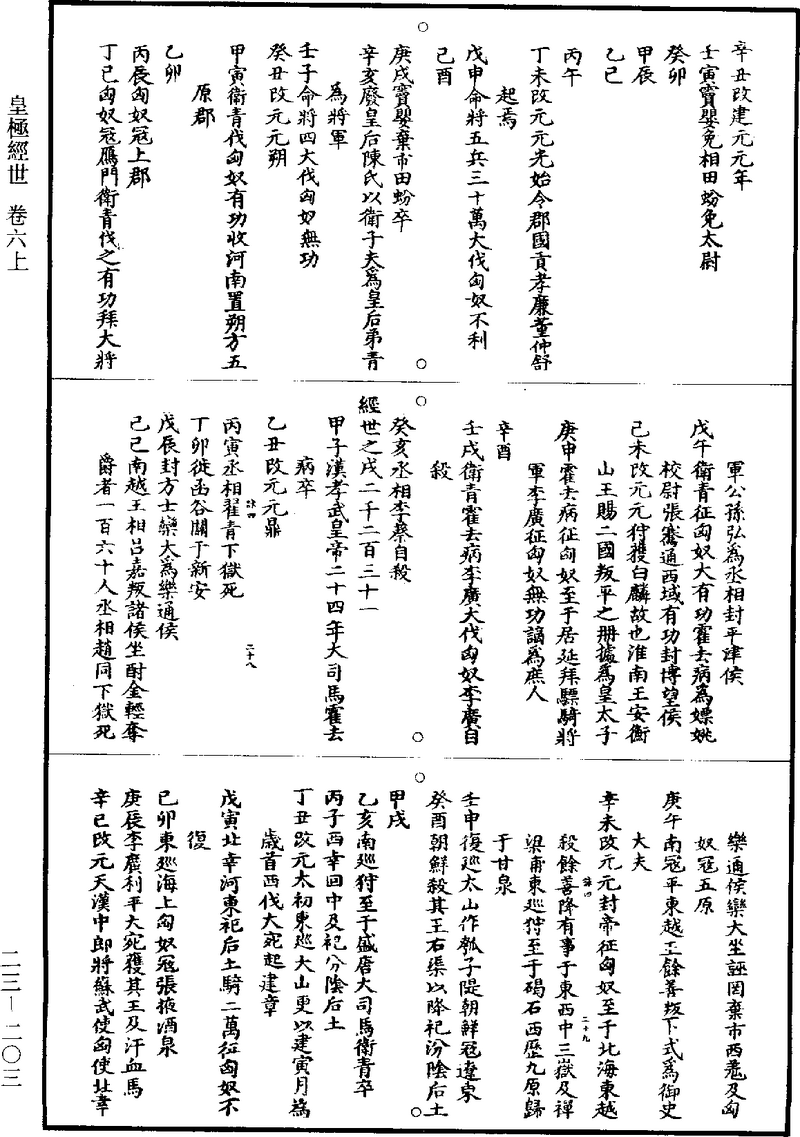 皇極經世　卷六上
辛丑改建元元年
壬寅竇嬰免相田蚡免太尉
癸卯
甲辰
乙巳
丙午
丁未改元元光始令郡國貢孝廉董仲舒
起焉
戊申命將五兵三十萬大伐匈奴不利
己酉
庚戌竇嬰棄市田蚡卒
辛亥廢皇后陳氏以衛子夫爲皇后弟青
爲將軍
壬子命將四大伐匈奴無功
癸丑改元元朔
甲寅衛青伐匈奴有功收河南置朔方五
原郡
乙卯
丙辰匈奴寇上郡
丁巳匈奴寇鴈門衛青伐之有功拜大將
軍公孫弘爲丞相封平津侯
戊午衛青征匈奴大有功霍去病爲嫖姚
校尉張騫通西域有功封博望侯
己未改元元狩獲白麟故也淮南王安衡
山王賜二國叛平之册據爲皇太子
庚申霍去病征匈奴至于居延拜驃騎將
軍李廣征匈奴無功謫爲庶人
辛酉
壬戌衛青霍去病李廣大伐匈奴李廣自
殺
癸亥丞相李蔡自殺
經世之戌二千二百三十一
甲子漢孝武皇帝二十四年大司馬霍去
病卒
乙丑改元元鼎
丙寅丞相翟青下獄死
丁卯徙函谷關于新安
戊辰封方士欒大爲樂通侯
己巳南越王相呂嘉叛諸侯坐酎金輕奪
爵者一百六十人丞相趙同下獄死
樂通侯欒大坐誣罔棄市西羗及匈
奴寇五原
庚午南寇平東越王餘善叛卜式爲御史
大夫
辛未改元元封帝征匈奴至于北海東越
殺餘善降有事于東西中三嶽及禪
梁甫東巡狩至于碣石西歷九原歸
于甘泉
壬申復巡太山作瓠子隄朝鮮寇遼東
癸酉朝鮮殺其王右渠以降祀汾陰后土
甲戌
乙亥南巡狩至于盛唐大司馬衛青卒
丙子西幸回中及祀汾陰后土
丁丑改元太初東巡大山更以建寅月爲
歲首西伐大宛起建章
戊寅北幸河東祀后土騎二萬征匈奴不
復
己卯東巡海上匈奴寇張掖酒泉
庚辰李廣利平大宛獲其王及汗血馬
辛巳改元天漢中郎將蘇武使匈使北幸
二三－二〇三